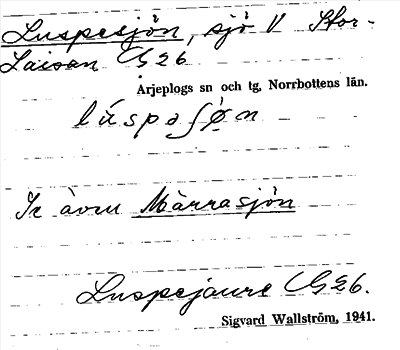 Luspesjön, sjö V Stor-
Laisan G26
Arjeplogs sn och tg, Norrbottens län.
lúspəʃø̀n
Se även Màrrasjön
Luspejaure G26.
Sigvard Wallström, 1941.